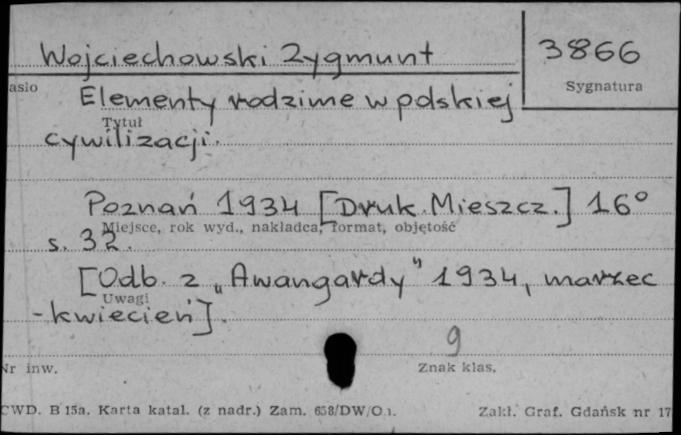 Wojciechowski Zygmunt
3866
asło
Sygnatura
Elementy rodzime w polskiej
Tytuł
cywilizacji.
Poznań 1934 [Druk. Mieszcz.] 16°
Miejsce, rok wyd., nakładca, format, objętość
s. 32.
[Odb. z „Awangardy" 1934, marzec
Uwagi
-kwiecień].
9
Nr inw.
Znak klas.
CWD. B 15a. Karta katal. (z nadr.) Zam. 658/DW/O
Zakł. Graf. Gdańsk nr 17